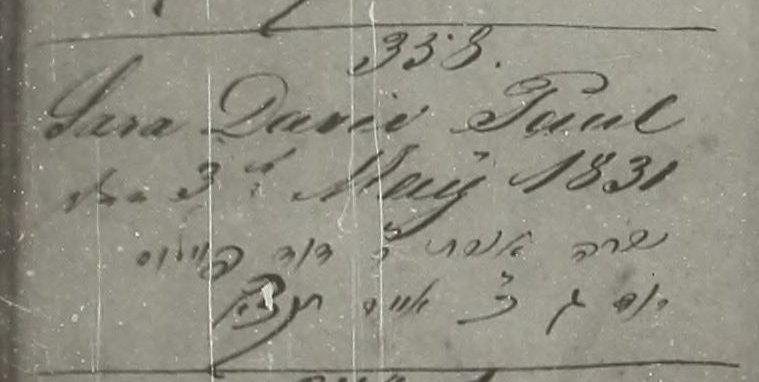 338.
Sara David Paul
den 3ᵗ Maÿ 1831
שרה אשת ר׳ דוד פוילוס
יום ג כ׳ אייר תקצא